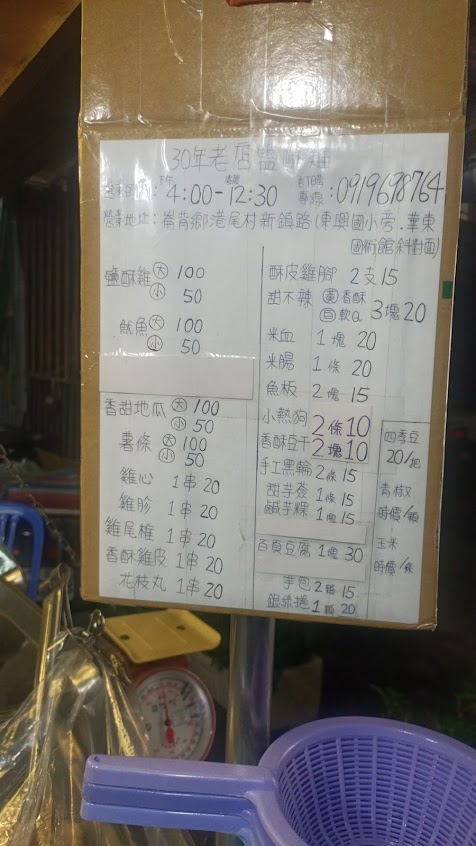 30年老店鹽酥雞
營業時間:下午4:00-晚12:30 訂購專線:0919698764
營業地址:崙背鄉港尾村新鎮路(東興國小旁.華東
國術館斜對面)
鹽酥雞 大 100
小 50
魷魚 大 100
小 50
香甜地瓜 大 100
小 50
薯條 大 100
小 50
雞心 1串 20
雞胗 1串 20
雞尾椎 1串 20
香酥雞皮 1串 20
花枝丸 1串 20
酥皮雞腳 2支 15
甜不辣 黃 香酥
白 軟Q 3塊 20
米血 1塊 20
米腸 1條 20
魚板 2塊 15
小熱狗 2條 10
香酥豆干 2塊 10
手工黑輪 2條 15
甜芋簽 1條 15
鹹芋粿 1塊 15
百頁豆腐 1塊 30
2顆 15
銀絲捲 1顆 20
四季豆
20/把
青椒
時價/顆
玉米
時價/條